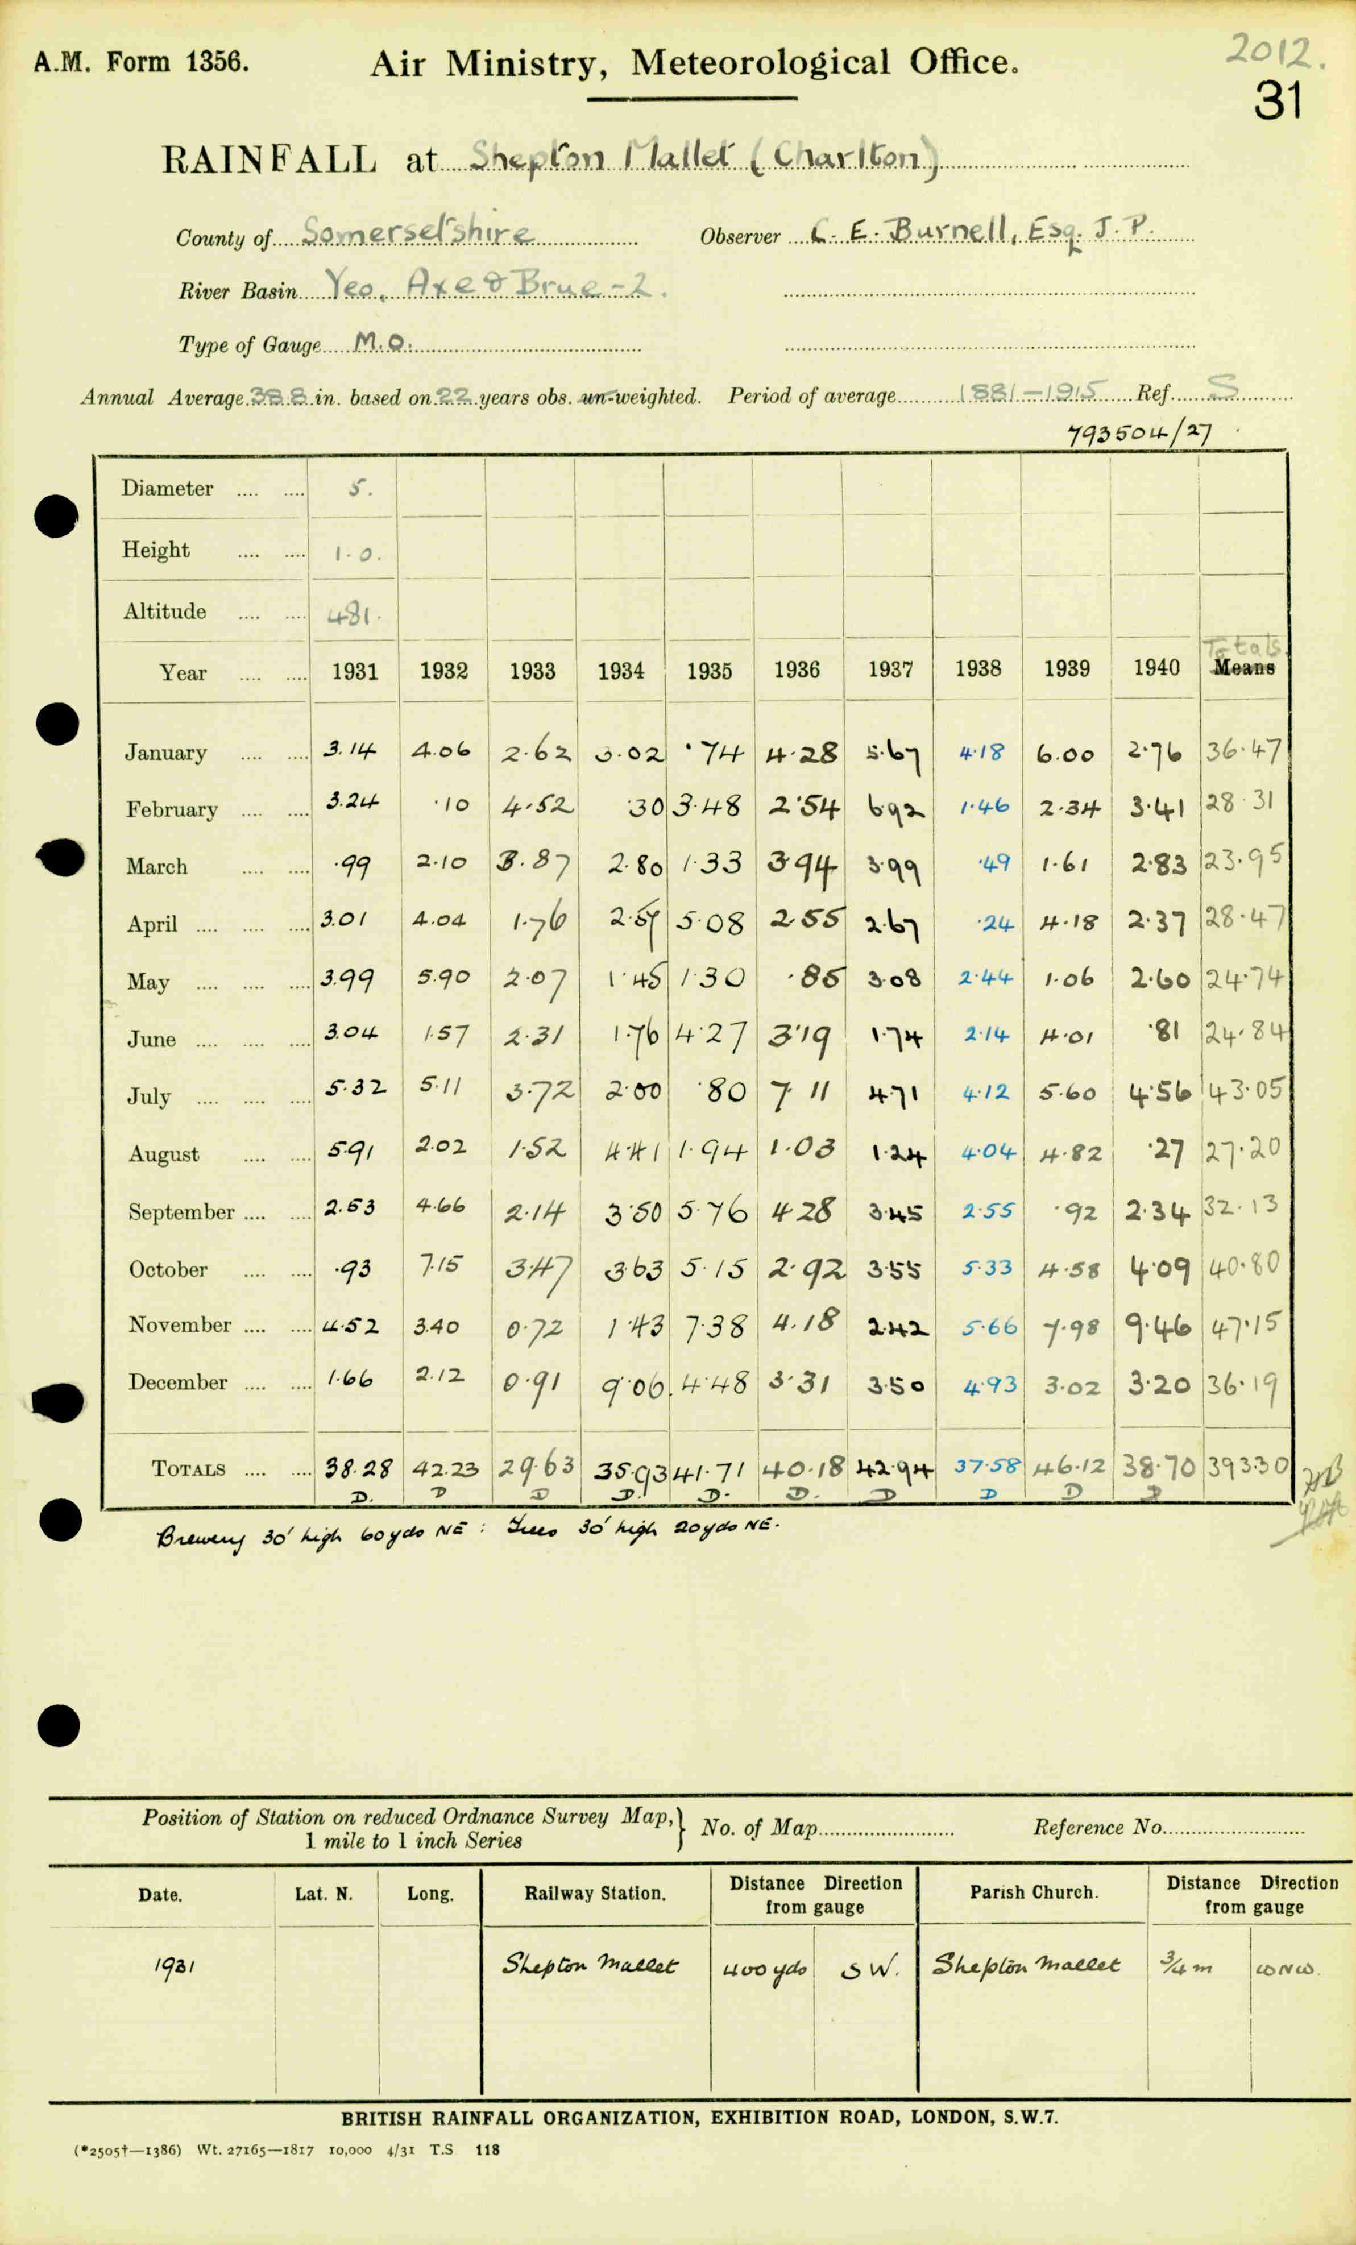 A.M. Form 1356. Air Ministry, Meteorological Office. 2012.
31
RAINFALL at Shepton Mallet (Charlton)
County of Somersetshire Observer C. E. Burnell, Esq. J. P.
River Basin Yeo, Axe & Brue - 2.
Type of Gauge M.O.
Annual Average 38.8 in. based on 22 years obs. un-weighted. Period of average 1881-1915 Ref. S
793504/27
Diameter .... .... 5.
Height .... .... 1.0.
Altitude .... .... 481.
Totals.
Year .... .... 1931 1932 1933 1934 1935 1936 1937 1938 1939 1940 Means
January .... .... 3.14 4.06 2.62 3.02 .74 4.28 5.67 4.18 6.00 2.76 36.47
February .... .... 3.24 .10 4.52 .30 3.48 2.54 6.92 1.46 2.34 3.41 28.31
March .... .... .99 2.10 3.87 2.80 1.33 3.94 3.99 .49 1.61 2.83 23.95
April .... .... .... 3.01 4.04 1.76 2.57 5.08 2.55 2.67 .24 4.18 2.37 28.47
May .... .... .... 3.99 5.90 2.07 1.45 1.30 .85 3.08 2.44 1.06 2.60 24.74
June .... .... .... 3.04 1.57 2.31 1.76 4.27 3.19 1.74 2.14 4.01 .81 24.84
July .... .... .... 5.32 5.11 3.72 2.00 .80 7.11 4.71 4.12 5.60 4.56 43.05
August .... .... 5.91 2.02 1.52 4.41 1.94 1.03 1.24 4.04 4.82 .27 27.20
September .... .... 2.53 4.66 2.14 3.50 5.76 4.28 3.45 2.55 .92 2.34 32.13
October .... .... .93 7.15 3.47 3.63 5.15 2.92 3.55 5.33 4.58 4.09 40.80
November .... .... 4.52 3.40 0.72 1.43 7.38 4.18 2.42 5.66 7.98 9.46 47.15
December .... .... 1.66 2.12 0.91 9.06 4.48 3.31 3.50 4.93 3.02 3.20 36.19
TOTALS .... .... 38.28 42.23 29.63 35.93 41.71 40.18 42.94 37.58 46.12 38.70 393.30
D. D D D. D. D. D D D D
Brewery 30' high 60 yds NE : Trees 30' high 20 yds NE.
Position of Station on reduced Ordnance Survey Map, } No. of Map Reference No.
1 mile to 1 inch Series
Date. Lat. N. Long. Railway Station. Distance Direction from gauge Parish Church. Distance Direction from gauge
1931 Shepton Mallet 400 yds SW. Shepton Mallet 3/4 m WNW.
BRITISH RAINFALL ORGANIZATION, EXHIBITION ROAD, LONDON, S.W.7.
(*2505†—1386) Wt. 27165—1817 10,000 4/31 T.S 118